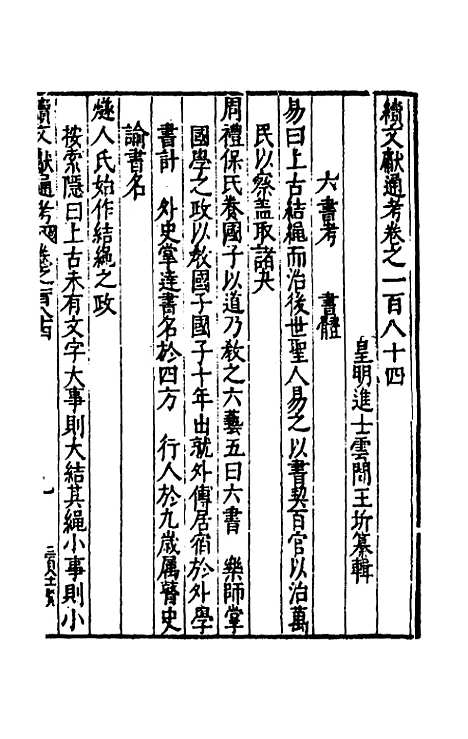 續文獻通考卷之一百八十四
皇明進士雲間王圻纂輯
六書考　書體
易曰上古結繩而治後世聖人易之以書契百官以治萬
民以察蓋取諸夬
周禮保氏養國子以道乃教之六藝五曰六書　樂師掌
國學之政以教國子國子十年出就外傅居宿於外學
書計　外史掌達書名於四方　行人於九歲属瞽史
諭書名
燧人氏始作結繩之政
按索隱曰上古未有文字大事則大結其繩小事則小
續文獻通考　卷之一百八十四　一